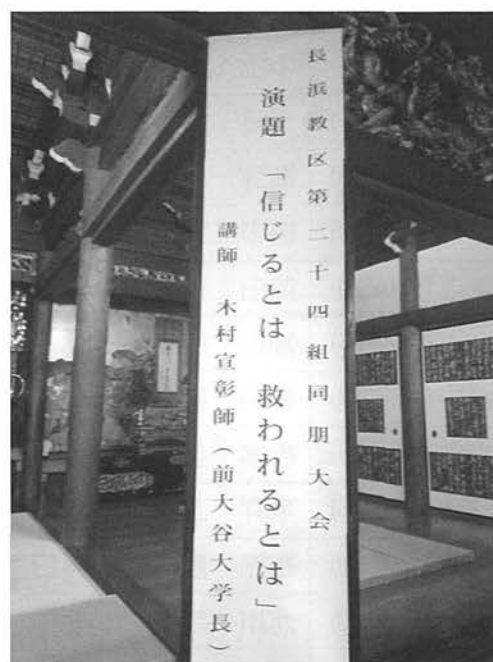 長浜教区第二十四組同朋大会
演題 「信じるとは 救われるとは」
講師 木村宣彰師（前大谷大学長）